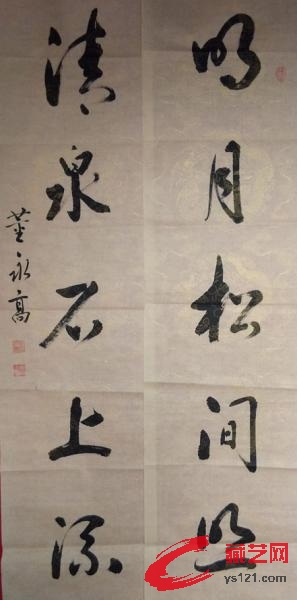 明月松间照
清泉石上流
董永高
藏艺网
ys121.com